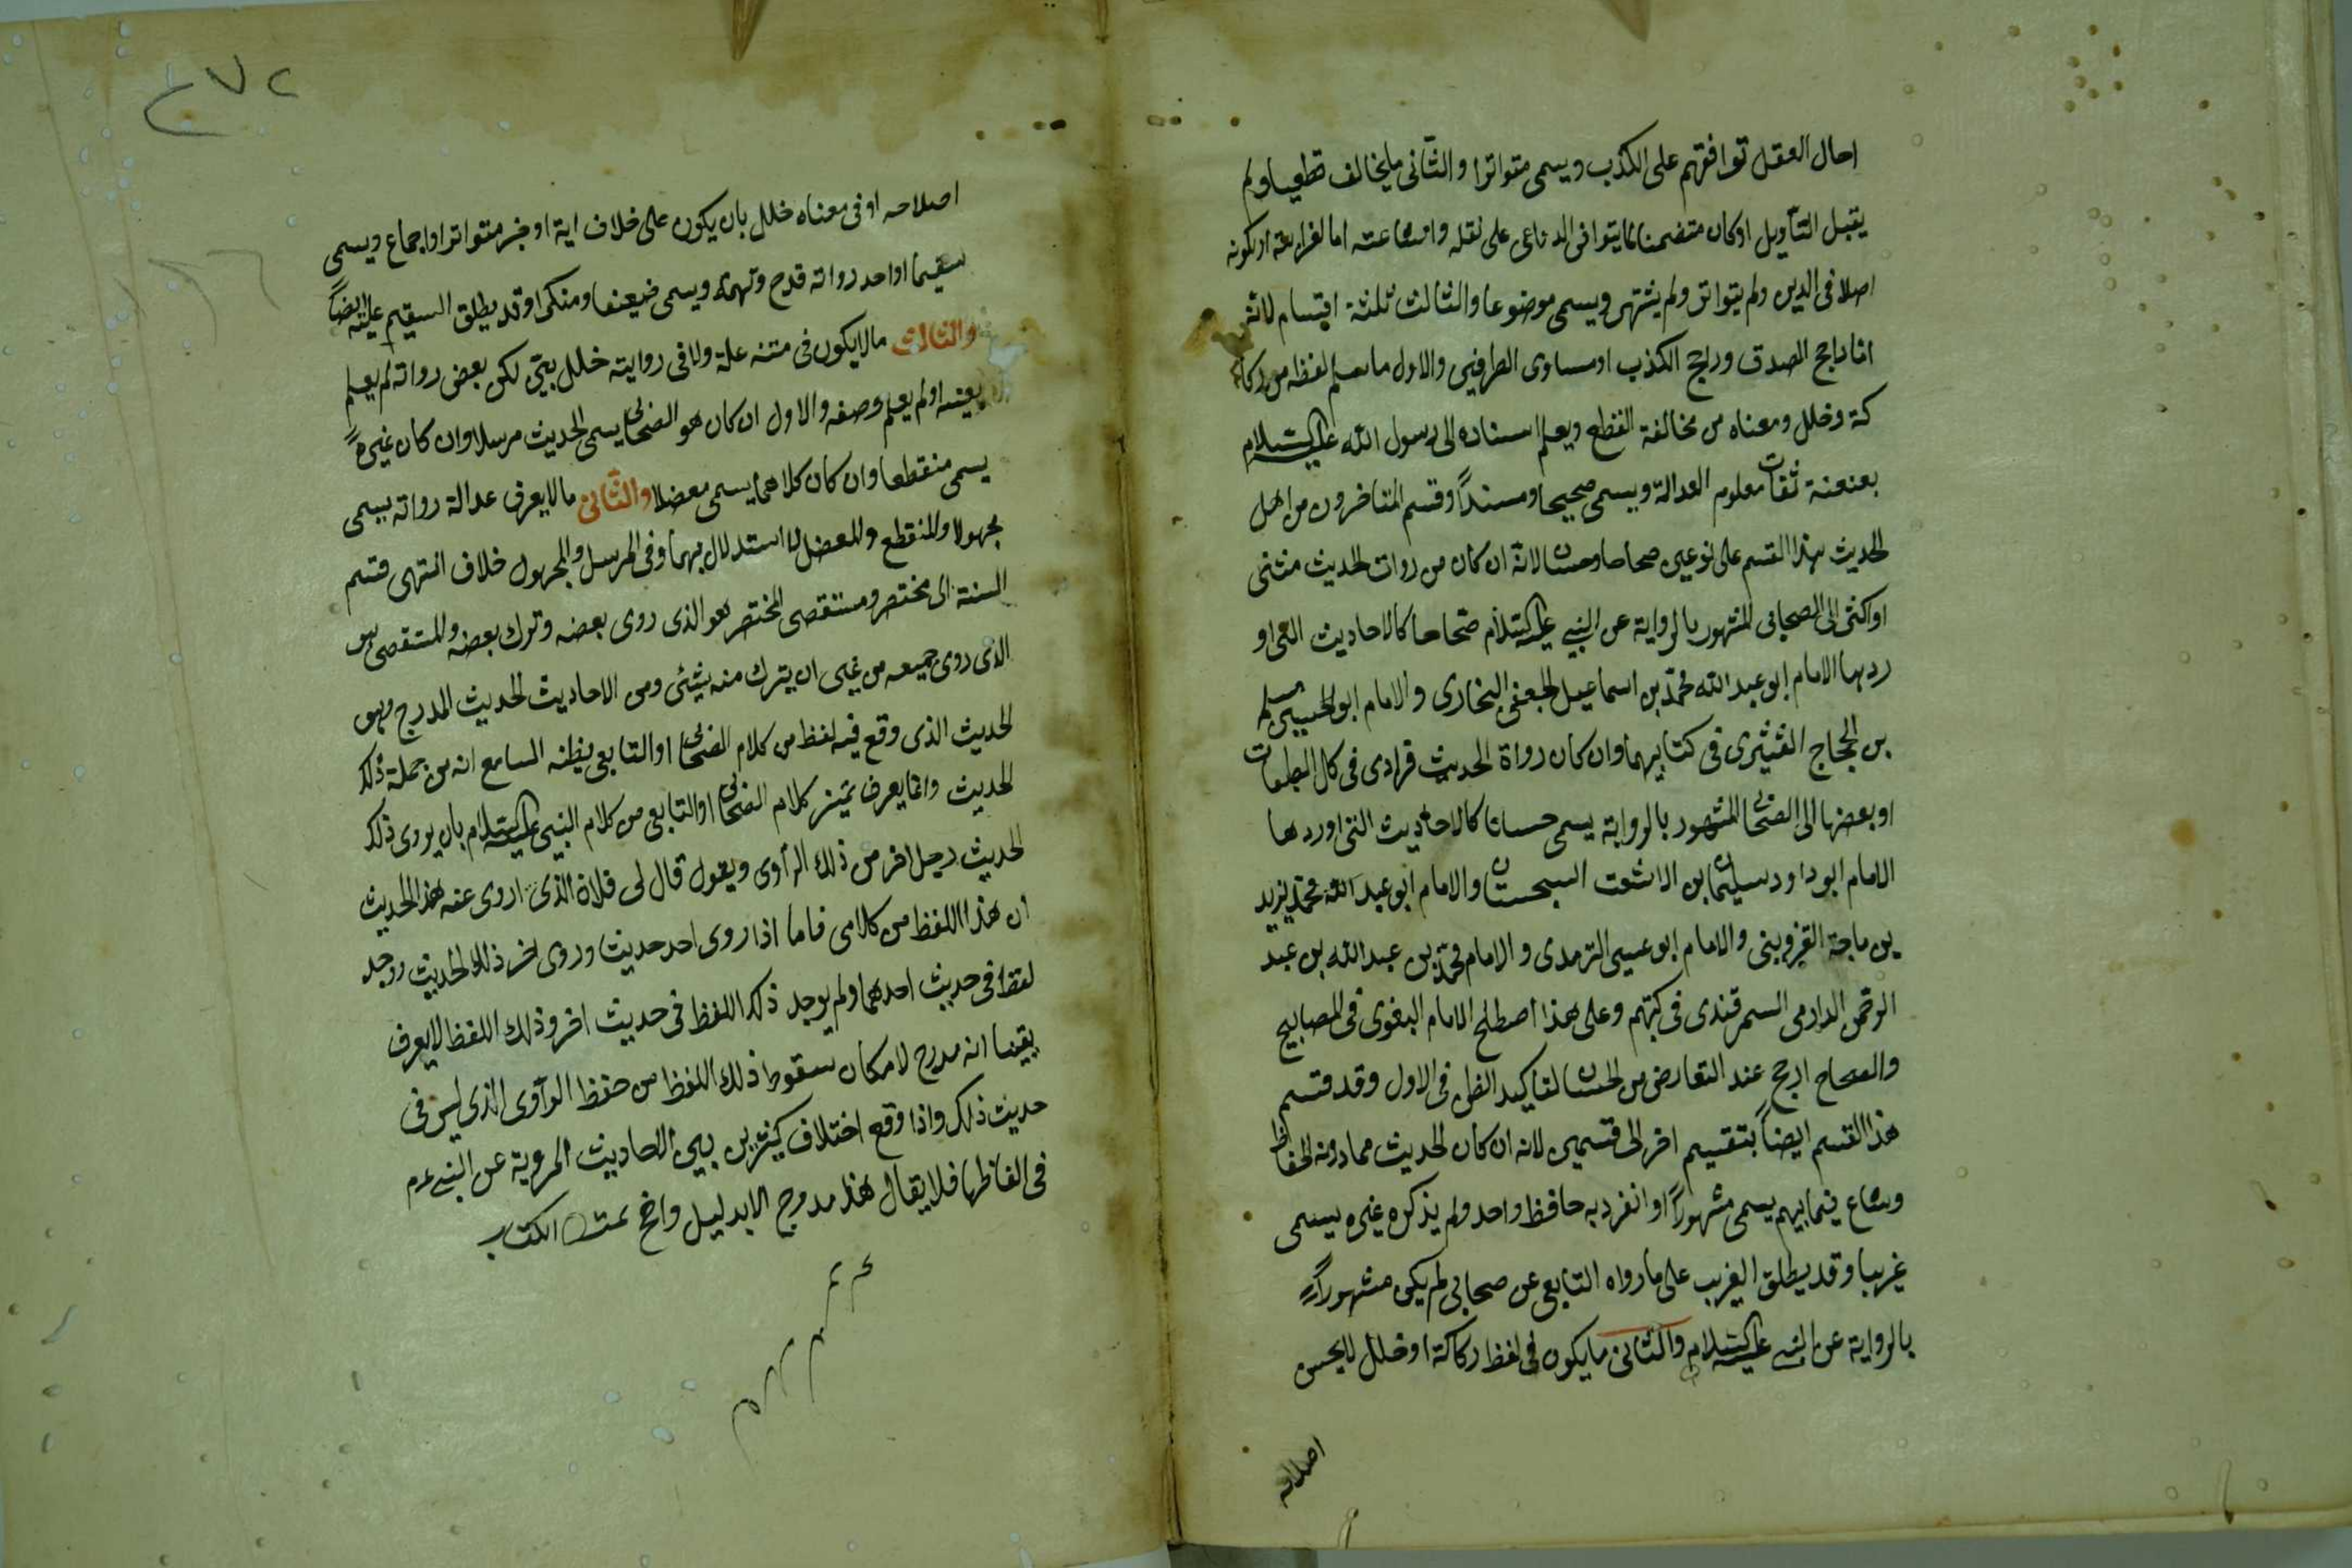 احال العقل توافقهم على الكذب ويسمى متواترا والثانى ما يخالف قطعيا ولم
يقبل التأويل اوكان متضمنا لما يتوافى الدواعى على نقله واشاعته اما لغرابته اولكونه
اصلا فى الدين ولم يتواتر ولم يشتهر ويسمى موضوعا والثالث ثلثة اقسام لانه
اما راجح الصدق وراجح الكذب او مساوى الطرفين والاول ما سلم لفظه من ركا
كة وخلل ومعناه من مخالفة القطع ويعلم اسناده الى رسول الله عليه السلام
بعنعنة ثقات معلوم العدالة ويسمى صحيحا ومسنداً وقسم المتاخرون من اهل
الحديث هذا القسم على نوعين صحاحا وحسانا لانه ان كان من روات الحديث مثنى
او اكثر الى الصحابى المشهور بالرواية عن النبى عليه السلام صحاحا كالاحاديث التى او
ردها الامام ابو عبد الله محمد بن اسماعيل الجعفى البخارى والامام ابو الحسين مسلم
بن الحجاج القشيرى فى كتابيهما وان كان رواة الحديث فرادى فى كل الطبقات
او بعضها الى الصحابى المشهور بالرواية يسمى حسانا كالاحاديث التى اوردها
الامام ابو داود سليمان بن الاشعث السجستانى والامام ابو عبد الله محمد بن يزيد
بن ماجة القزوينى والامام ابو عيسى الترمدى والامام محمد بن عبد الله بن عبد
الرحمن الدارمى السمرقندى فى كتبهم وعلى هذا اصطلح الامام البغوى فى المصابيح
والصحاح ارجح عند التعارض من الحسان لتاكيد الظن فى الاول وقد قسم
هذا القسم ايضاً بتقسيم اخر الى قسمين لانه ان كان الحديث مما دونه الحفاظ
وشاع فيما بينهم يسمى مشهوراً او انفرد به حافظ واحد ولم يذكره غيره يسمى
غريبا وقد يطلق الغريب على ما رواه التابعى عن صحابى لم يكن مشهوراً
بالرواية عن النبى عليه السلام والثانى ما يكون فى لفظ ركاكة او خلل لا يحسن
اصلاحه
٢٧٢
اصلاحه او فى معناه خلل بان يكون على خلاف اية او خبر متواتر او اجماع ويسمى
سقيما او احد رواته قدح وتهمة ويسمى ضعيفا ومنكرا وقد يطلق السقيم عليه ايضاً
والثالث ما لا يكون فى متنه علة ولا فى روايته خلل بين لكن بعض رواته لم يعلم
بعينه او لم يعلم وصفه والاول ان كان هو الصحابى يسمى الحديث مرسلا وان كان غيره
يسمى منقطعا وان كان كلاهما يسمى معضلا والثانى ما لا يعرف عدالة رواته يسمى
مجهولا والمنقطع والمعضل لا استدلال بهما وفى المرسل والمجهول خلاف انتهى قسم
السنة الى مختصر ومستقصى المختصر هو الذى روى بعضه وترك بعضه والمستقصى هو
الذى روى جميعه من غير ان يترك منه شئ ومن الاحاديث الحديث المدرج وهو
الحديث الذى وقع فيه لفظ من كلام الصحابى او التابعى يظنه السامع انه من جملة ذلك
الحديث وانما يعرف تميز كلام الصحابى او التابعى من كلام النبى عليه السلام بان يروى ذلك
الحديث رجل اخر من ذلك الرأوى ويقول قال لى فلان الذى اروى عنه هذا الحديث
ان هذا اللفظ من كلامى فاما اذا روى احد حديثا وروى اخر ذلك الحديث ووجد
لفظ فى حديث احدهما ولم يوجد ذلك اللفظ فى حديث اخر وذلك اللفظ لا يعرف
يقينا انه مدرج لامكان سقوط ذلك اللفظ من حفظ الرأوى الذى ليس فى
حديث ذلك واذا وقع اختلاف كثير بين الاحاديث المروية عن النبى عم
فى الفاظها فلا يقال هذا مدرج الا بدليل واضح تمت الكتاب